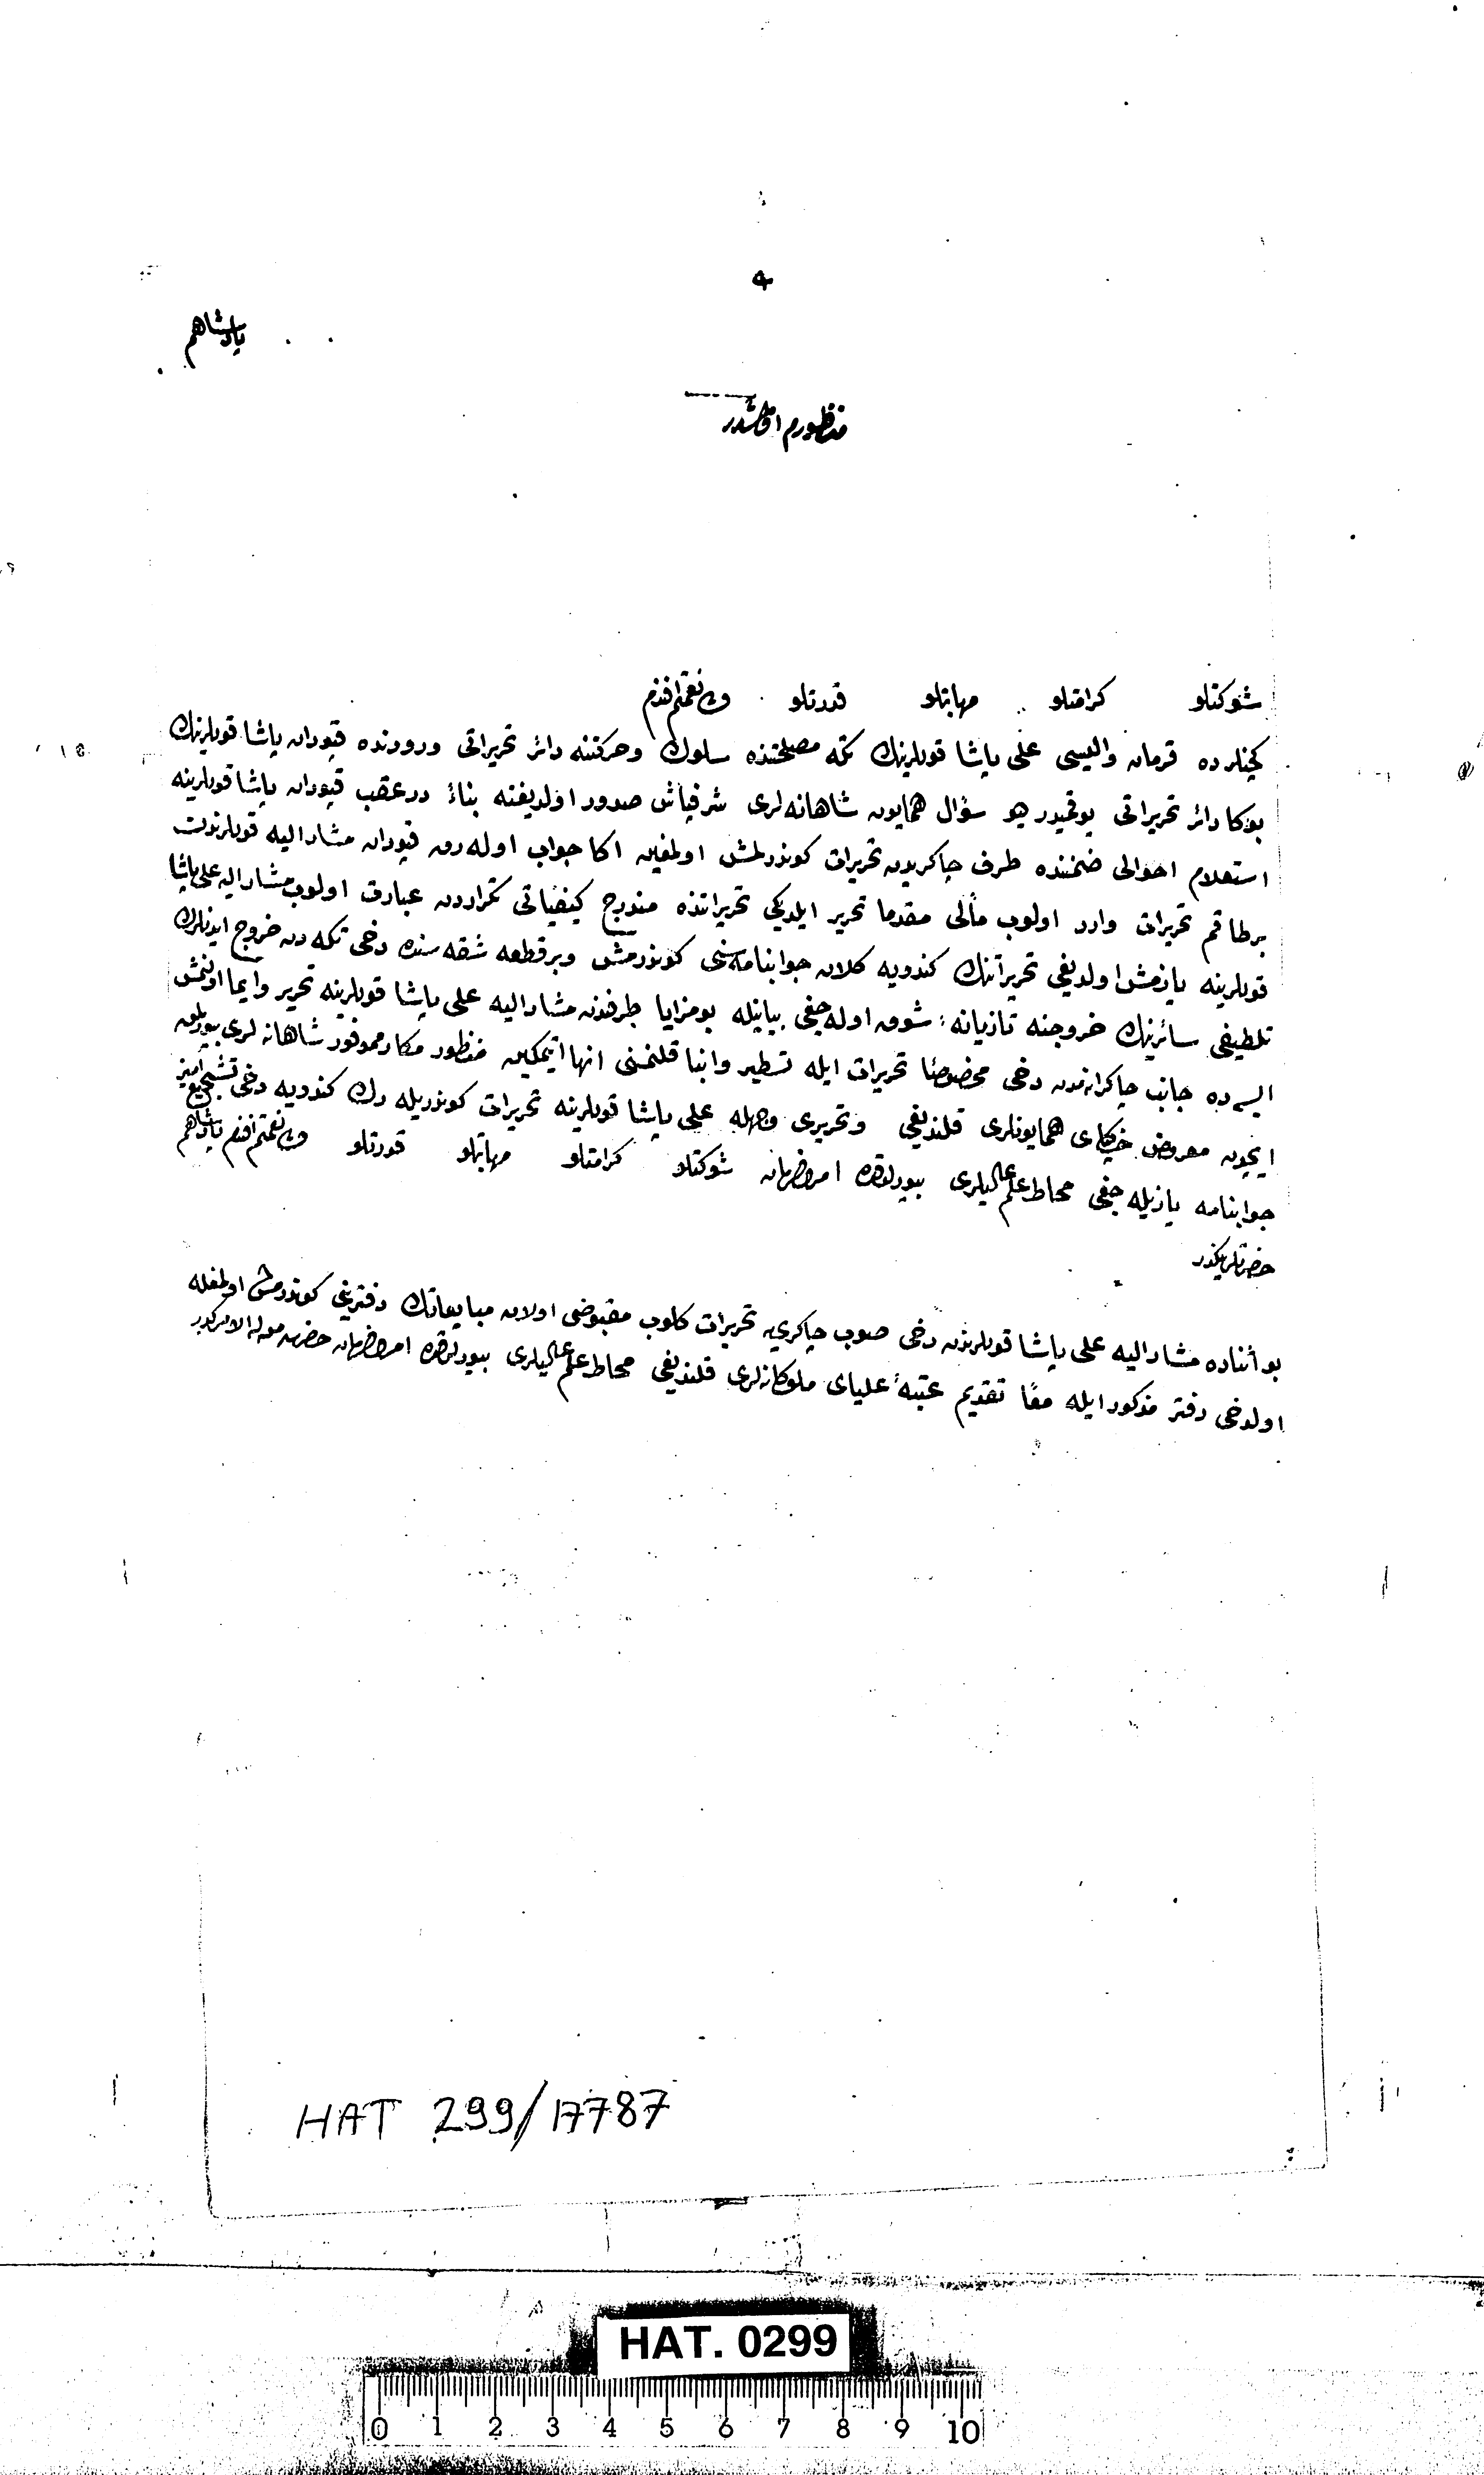 پادشاهم
منظورم اولمشدر
شوكتلو كرامتلو مهابتلو قدرتلو ولی نعمتم افندم
كچنلرده قرمان والیسی علی پاشا قوللرينك تكه مصلحتنده سلوك وحركتنه دائر تحريراتی ورودنده قپودان پاشا قوللرينك
بوكا دائر تحريراتی يوقميدر ديو سؤال همايون شاهانه لری شرفپاش صدور اولديغنه بناءً درعقب قپودان پاشا قوللرينه
استعلام احوالی ضمننده طرف چاكريدن تحريرات كوندرلمش اولمغين اكا جواب اوله رق قپودان مشار اليه قوللرندن
برطاقم تحريرات وارد اولوب مألی مقدما تحرير ايلديكی تحريراتنده مندرج كيفياتی تكراردن عبارت اولوب مشار اليه علی پاشا
قوللرينه يازمش اولديغی تحريراتنك كندويه كلان جوابنامه سنی كوندرمش وبر قطعه شقه سنده دخی تكه دن خروج ايدنلرك
تلطيفی سائرينك خروجنه تازيانهٔ شوق اوله جغی بيانيله بو مزايا طرفندن مشار اليه علی پاشا قوللرينه تحرير وايما اولنمش
ايسه ده جانب چاكرانه مدن دخی مخصوصًا تحريرات ايله تسطير وانبا قلنمسنی انها ايتمكين منظور مكارم موفور شاهانه لری بيورلمق
ايچون معروض خاكپای همايونلری قلنديغی وتحريری وجهله علی پاشا قوللرينه تحريرات كوندريله رك كندويه دخی تشجيع آميز
جوابنامه يازيله جغی محاط علم عاليلری بيورلدقده امر وفرمان شوكتلو كرامتلو مهابتلو قدرتلو ولی نعمتم افندم پادشاهم
حضرتلرينكدر
بو أثناده مشار اليه علی پاشا قوللرندن دخی صوب چاكری يه تحريرات كلوب مقبوضی اولان مبايعاتك دفترينی كوندرمش اولمغله
اولدخی دفتر مذكور ايله معًا تقديم عتبهٔ علياى ملوكانه لری قلنديغی محاط علم عاليلری بيورلدقده امر وفرمان حضرت من له الامركدر
HAT 299/17787
HAT. 0299
0 1 2 3 4 5 6 7 8 9 10